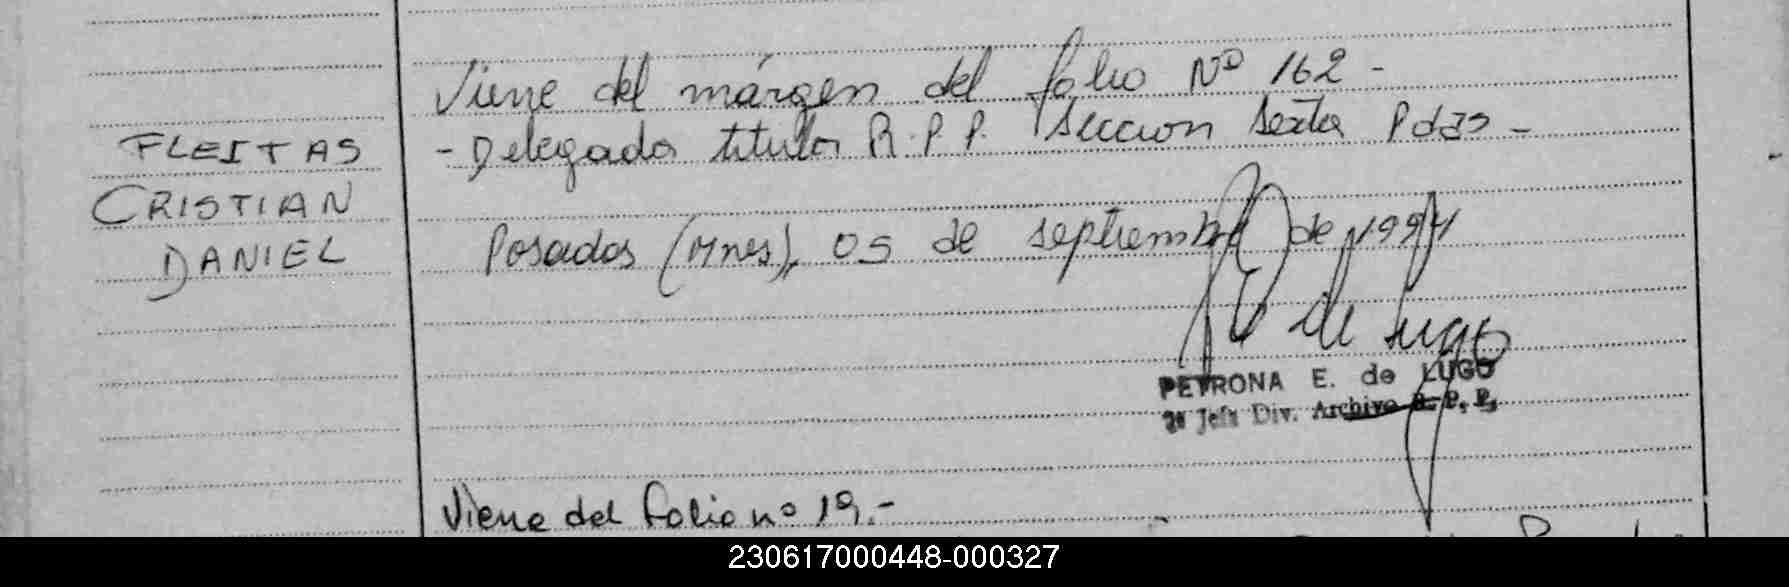 Viene del márgen del folio Nº 162 -
- Delegada titular R.P.P. Seccion Sexta Pdas -
FLEITAS
CRISTIAN
DANIEL
Posadas (Mnes), 05 de septiembre de 1994
de Lugo
PETRONA E. de LUGO
2º Jefe Div. Archivo R. P. P.
Viene del folio nº 19.-
230617000448-000327